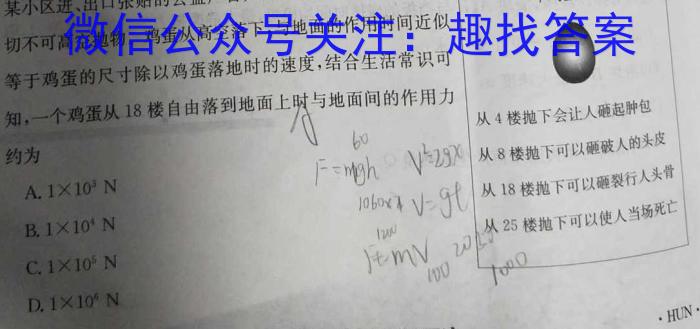 某小区进、出口张贴的公益广告
微信公众号关注：趣找答案
切不可高空抛物。鸡蛋从高空落下,与地面的作用时间近似
等于鸡蛋的尺寸除以鸡蛋落地时的速度,结合生活常识可
知,一个鸡蛋从 18 楼自由落到地面上时与地面间的作用力
约为
A. 1×10³ N
B. 1×10⁴ N
C. 1×10⁵ N
D. 1×10⁶ N
60
F=mgh V²=2gx
V=gt
1200
Ft=mV
100
1000
从 4 楼抛下会让人砸起肿包
从 8 楼抛下可以砸破人的头皮
从 18 楼抛下可以砸裂行人头骨
从 25 楼抛下可以使人当场死亡
· HUN ·